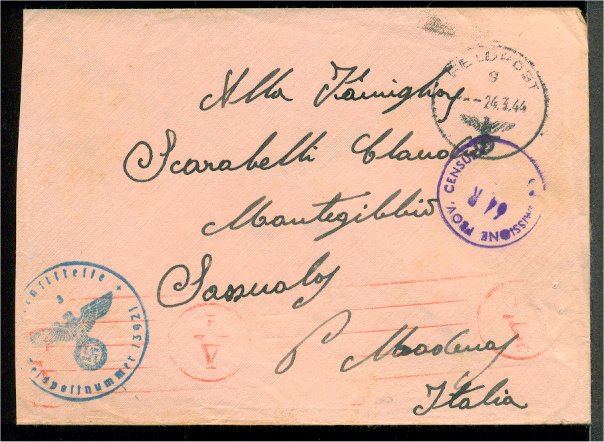 FELDPOST
g
24.3.44
Alla Famiglia
Scarabelli Claudio
COMMISSIONE PROV. CENSURA
64 R
Montegibbio
Sassuolo
Dienststelle
Feldpostnummer
A
A
P Modena
Italia